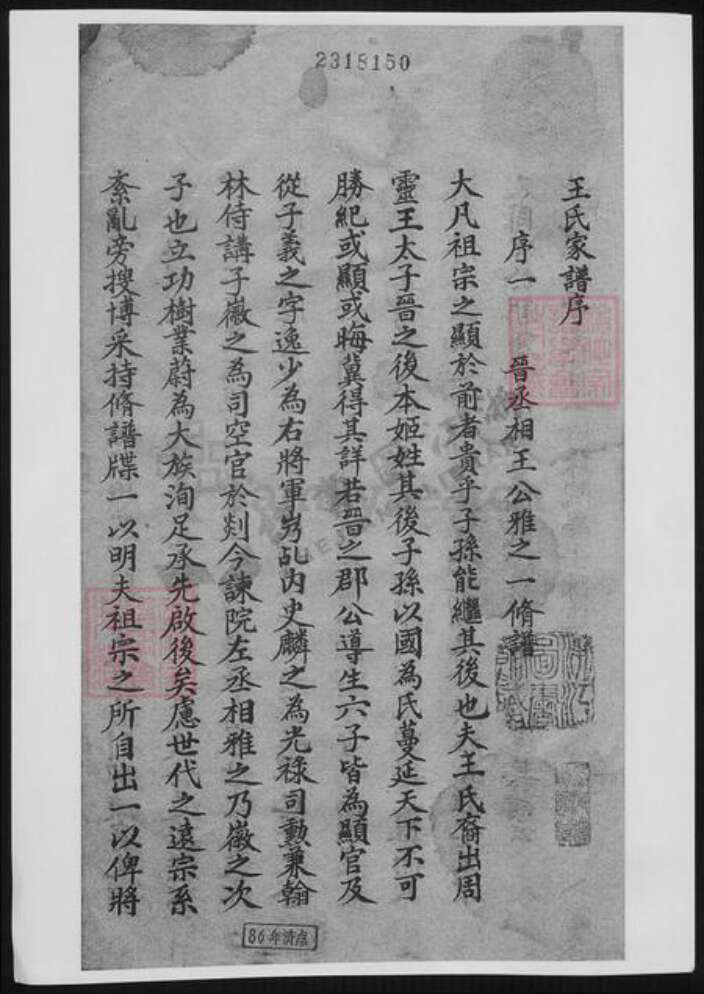 2318150
王氏家譜序
序一 晉丞相王公雅之一脩譜
大凡祖宗之顯於前者貴乎子孫能繼其後也夫王氏裔出周
靈王太子晉之後本姬姓其後子孫以國為氏蔓延天下不可
勝紀或顯或晦冀得其詳若晉之郡公導生六子皆為顯官及
從子義之字逸少為右將軍嵗乩內史麟之為光祿司勳兼翰
林侍講子徽之為司空官於剡今諫院左丞相雅之乃徽之次
子也立功樹業蔚為大族洵足承先啟後矣慮世代之遠宗系
紊亂旁搜博采持脩譜牒一以明夫祖宗之所自出一以俾將
86年清点